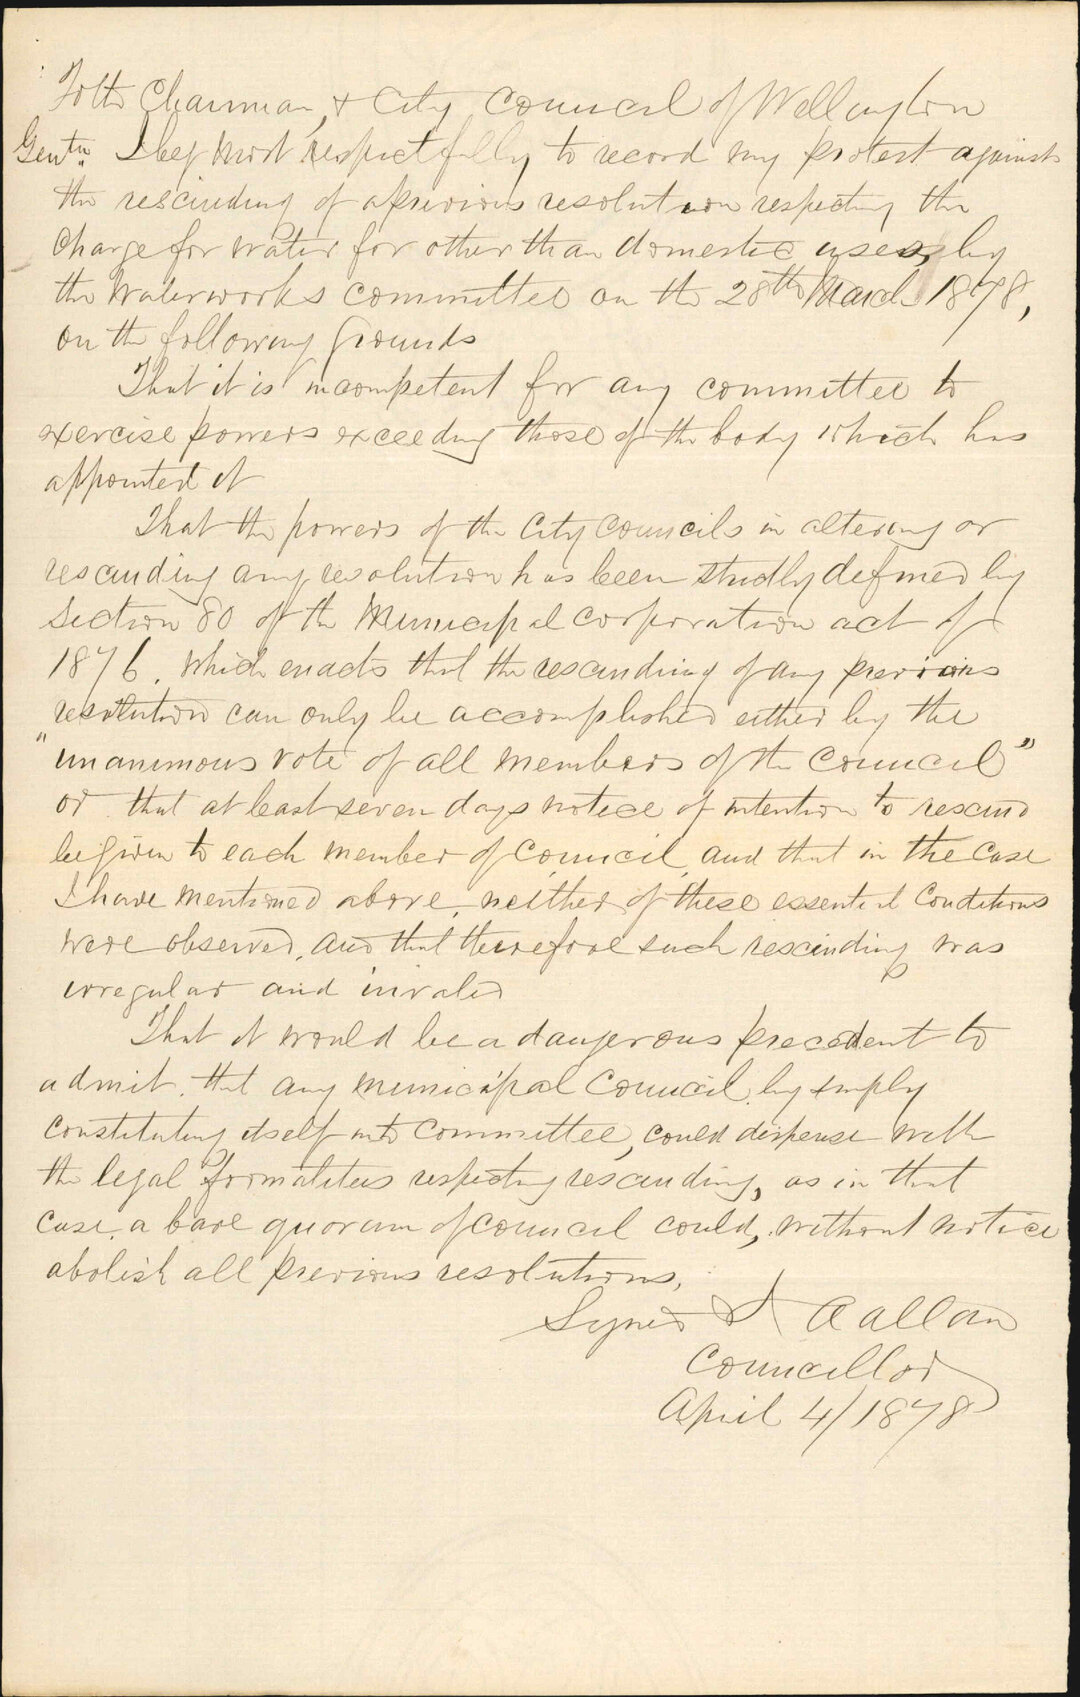 To the Chairman, & City Council of Wellington
Gentn. I beg most respectfully to record my protest against
the rescinding of a previous resolution respecting the
Charge for water for other than domestic uses, by
the Waterworks Committee on the 28th March 1878,
on the following grounds
That it is incompetent for any committee to
exercise powers exceeding those of the body which has
appointed it
That the powers of the City Councils in altering or
rescinding any resolution has been strictly defined by
Section 80 of the Municipal Corporation act of
1876. which enacts that the rescinding of any previous
resolution can only be accomplished either by the
"unanimous vote of all members of the Council"
or that at least seven days notice of intention to rescind
be given to each member of Council, and that in the Case
I have mentioned above, neither of these essential Conditions
were observed, and that therefore such rescinding was
irregular and invalid
That it would be a dangerous precedent to
admit. that any Municipal Council, by simply
constituting itself into Committee, could dispense with
the legal formalities respecting rescinding, as in that
case, a bare quorum of Council could, without notice
abolish all previous resolutions.
Signed J A Allan
Councillor
April 4/1878